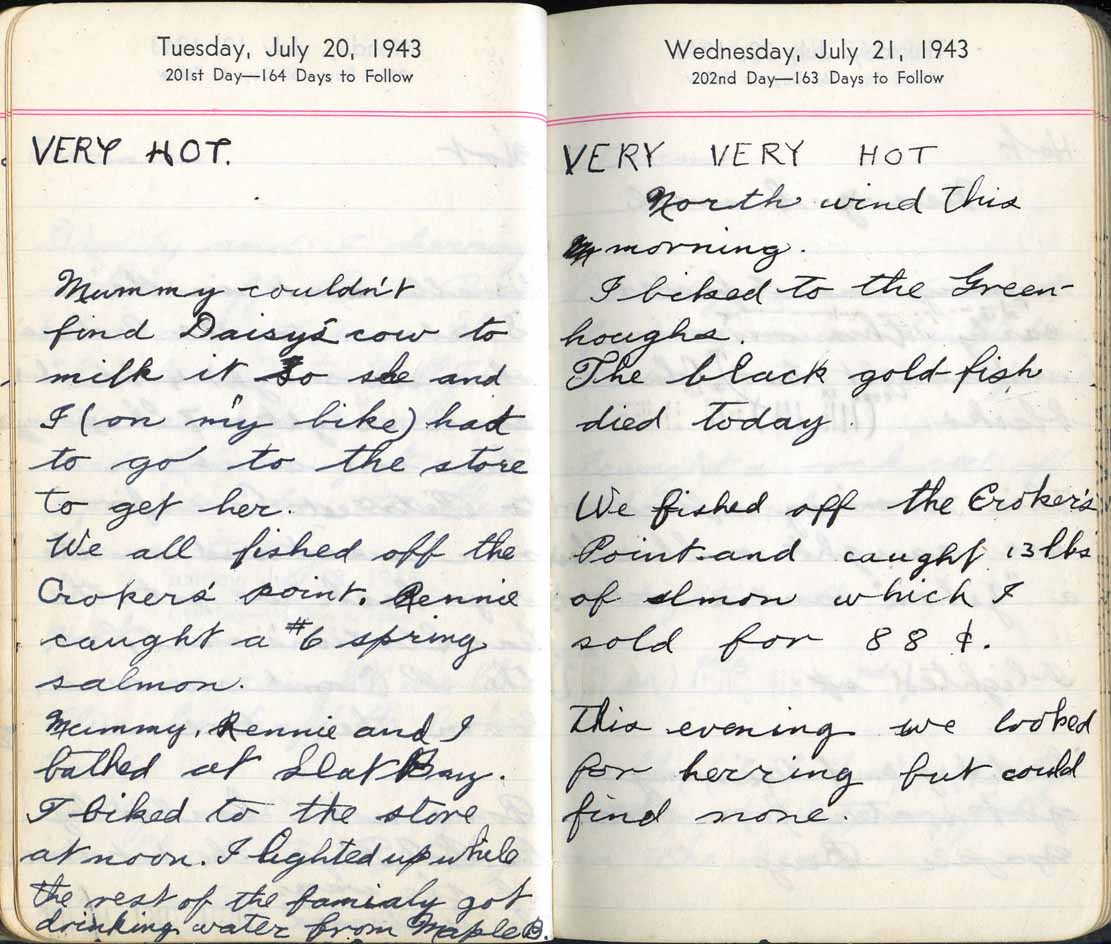 Tuesday, July 20, 1943
201st Day—164 Days to Follow
VERY HOT.
Mummy couldn't
find Daisy's cow to
milk it So she and
I (on my bike) had
to go to the store
to get her.
We all fished off the
Crokers point. Rennie
caught a #6 spring
salmon.
Mummy, Rennie and I
bathed at Slat Bay.
I biked to the store
at noon. I lighted up while
the rest of the famialy got
drinking water from Maple B.
Wednesday, July 21, 1943
202nd Day—163 Days to Follow
VERY VERY HOT
North wind this
morning.
I biked to the Green-
houghs
The black gold-fish
died today.
We fished off the Croker's
Point and caught 13 lbs
of slmon which I
sold for 88 ¢.
This evening we looked
for herring but could
find none.